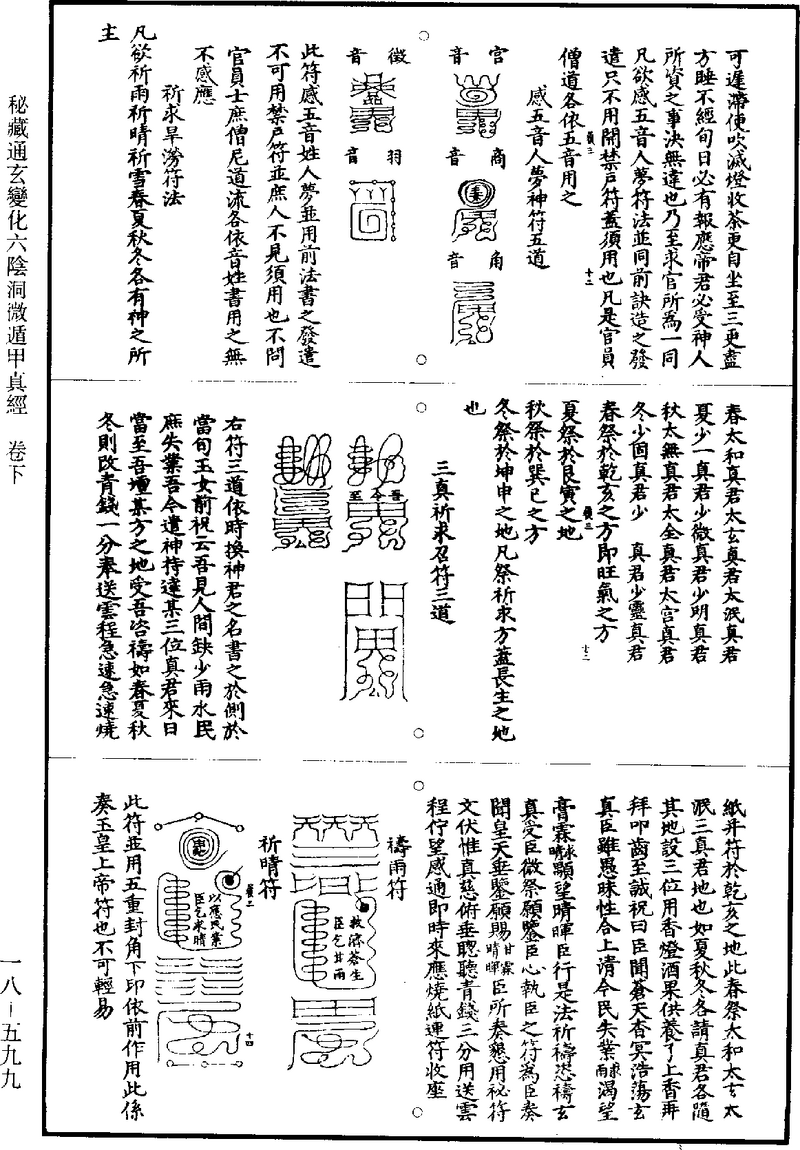 可遲滯便吹滅燈收茶更自坐至三更盡
方睡不經旬日必有報應帝君必受神人
所資之事決無違也乃至求官所為一同
凡欲感五音人夢符法並同前訣造之發
遣只不用開禁戶符蓋須用也凡是官員
僧道各依五音用之
感五音人夢神符五道
宮音
商音
角音
徵音
羽音
此符感五音姓人夢並用前法書之發遣
不可用禁戶符並庶人不見須用也不問
官員士庶僧尼道流各依音姓書用之無
不感應
祈求旱澇符法
凡欲祈雨祈晴祈雪春夏秋冬各有神之所
主
春太和真君太玄真君太泯真君
夏少一真君少微真君少明真君
秋太無真君太全真君太宮真君
冬少固真君少 真君少靈真君
春祭於乾亥之方即旺氣之方
夏祭於艮寅之地
秋祭於巽巳之方
冬祭於坤申之地凡祭祈求方蓋長生之地
也
三真祈求召符三道
吾今至
右符三道依時換神君之名書之於側於
當旬玉女前祝云吾見人間缺少雨水民
庶失業吾今遣神持達某三位真君來日
當至吾壇某方之地受吾咨禱如春夏秋
冬則改青錢一分奉送雲程急速急速燒
紙并符於乾亥之地此春祭太和太玄太
泯三真君地也如夏秋冬各請真君各隨
其地設三位用香燈酒果供養了上香再
拜叩齒至誠祝曰臣聞蒼天杳冥浩蕩玄
真臣雖愚昧性合上清今民失業雨求渴望
膏霖晴求顯望晴暉臣行是法祈禱恣禱玄
真受臣微祭願鑒臣心執臣之符為臣奏
聞皇天垂鑒願賜甘霖晴暉臣所奏懇用祕符
文伏惟真慈俯垂聰聽青錢三分用送雲
程佇望感通即時來應燒紙連符收座
禱雨符
救濟蒼生
臣乞甘雨
祈晴符
以應民業
臣乞求晴
十四
此符並用五重封角下印依前作用此係
奏玉皇上帝符也不可輕易
秘藏通玄變化六陰洞微遁甲真經 卷下
一八－五九九